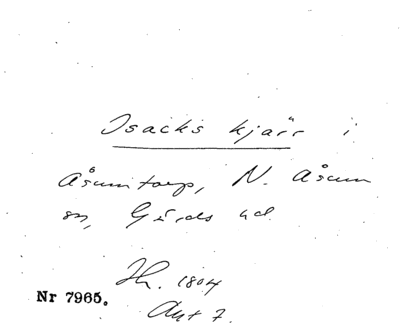 Isacks kjärr i
Åsumtorp, N. Åsum
sn, Gärds hd
Hl. 1804
Nr 7965.
Akt 7.